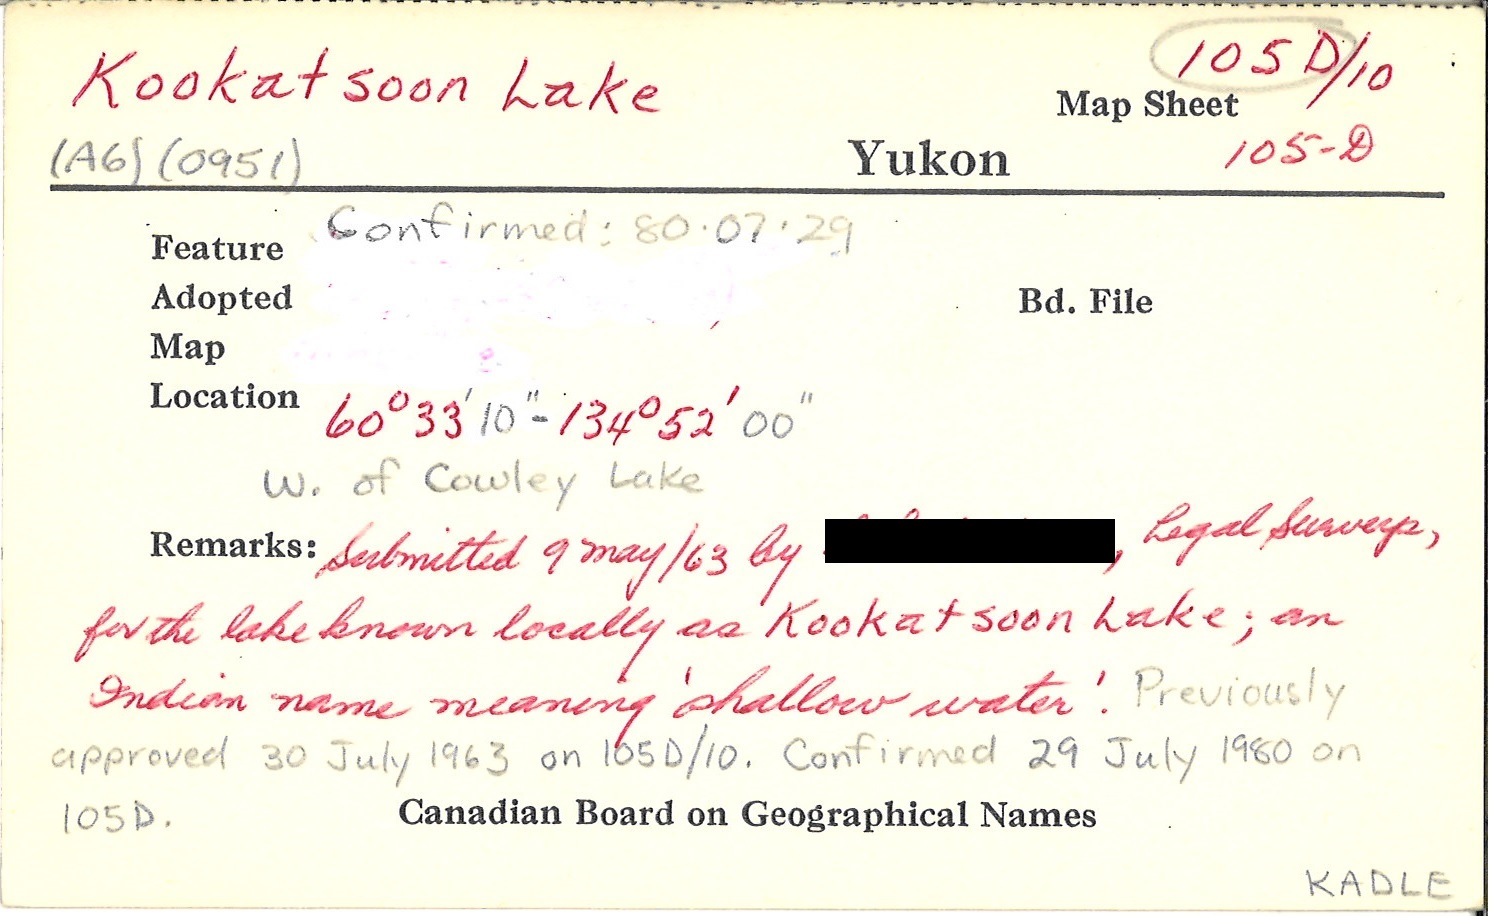 Kookatsoon Lake
105 D/10
Map Sheet
(A6) (0951)
Yukon
105-D
Confirmed: 80.07.29
Feature
Adopted
Bd. File
Map
Location 60°33'10"-134°52'00"
W. of Cowley Lake
Remarks: Submitted 9 May/63 by , Legal Surveys,
for the lake known locally as Kookatsoon Lake; an
Indian name meaning 'shallow water'. Previously
approved 30 July 1963 on 105D/10. Confirmed 29 July 1980 on
105D.
Canadian Board on Geographical Names
KADLE